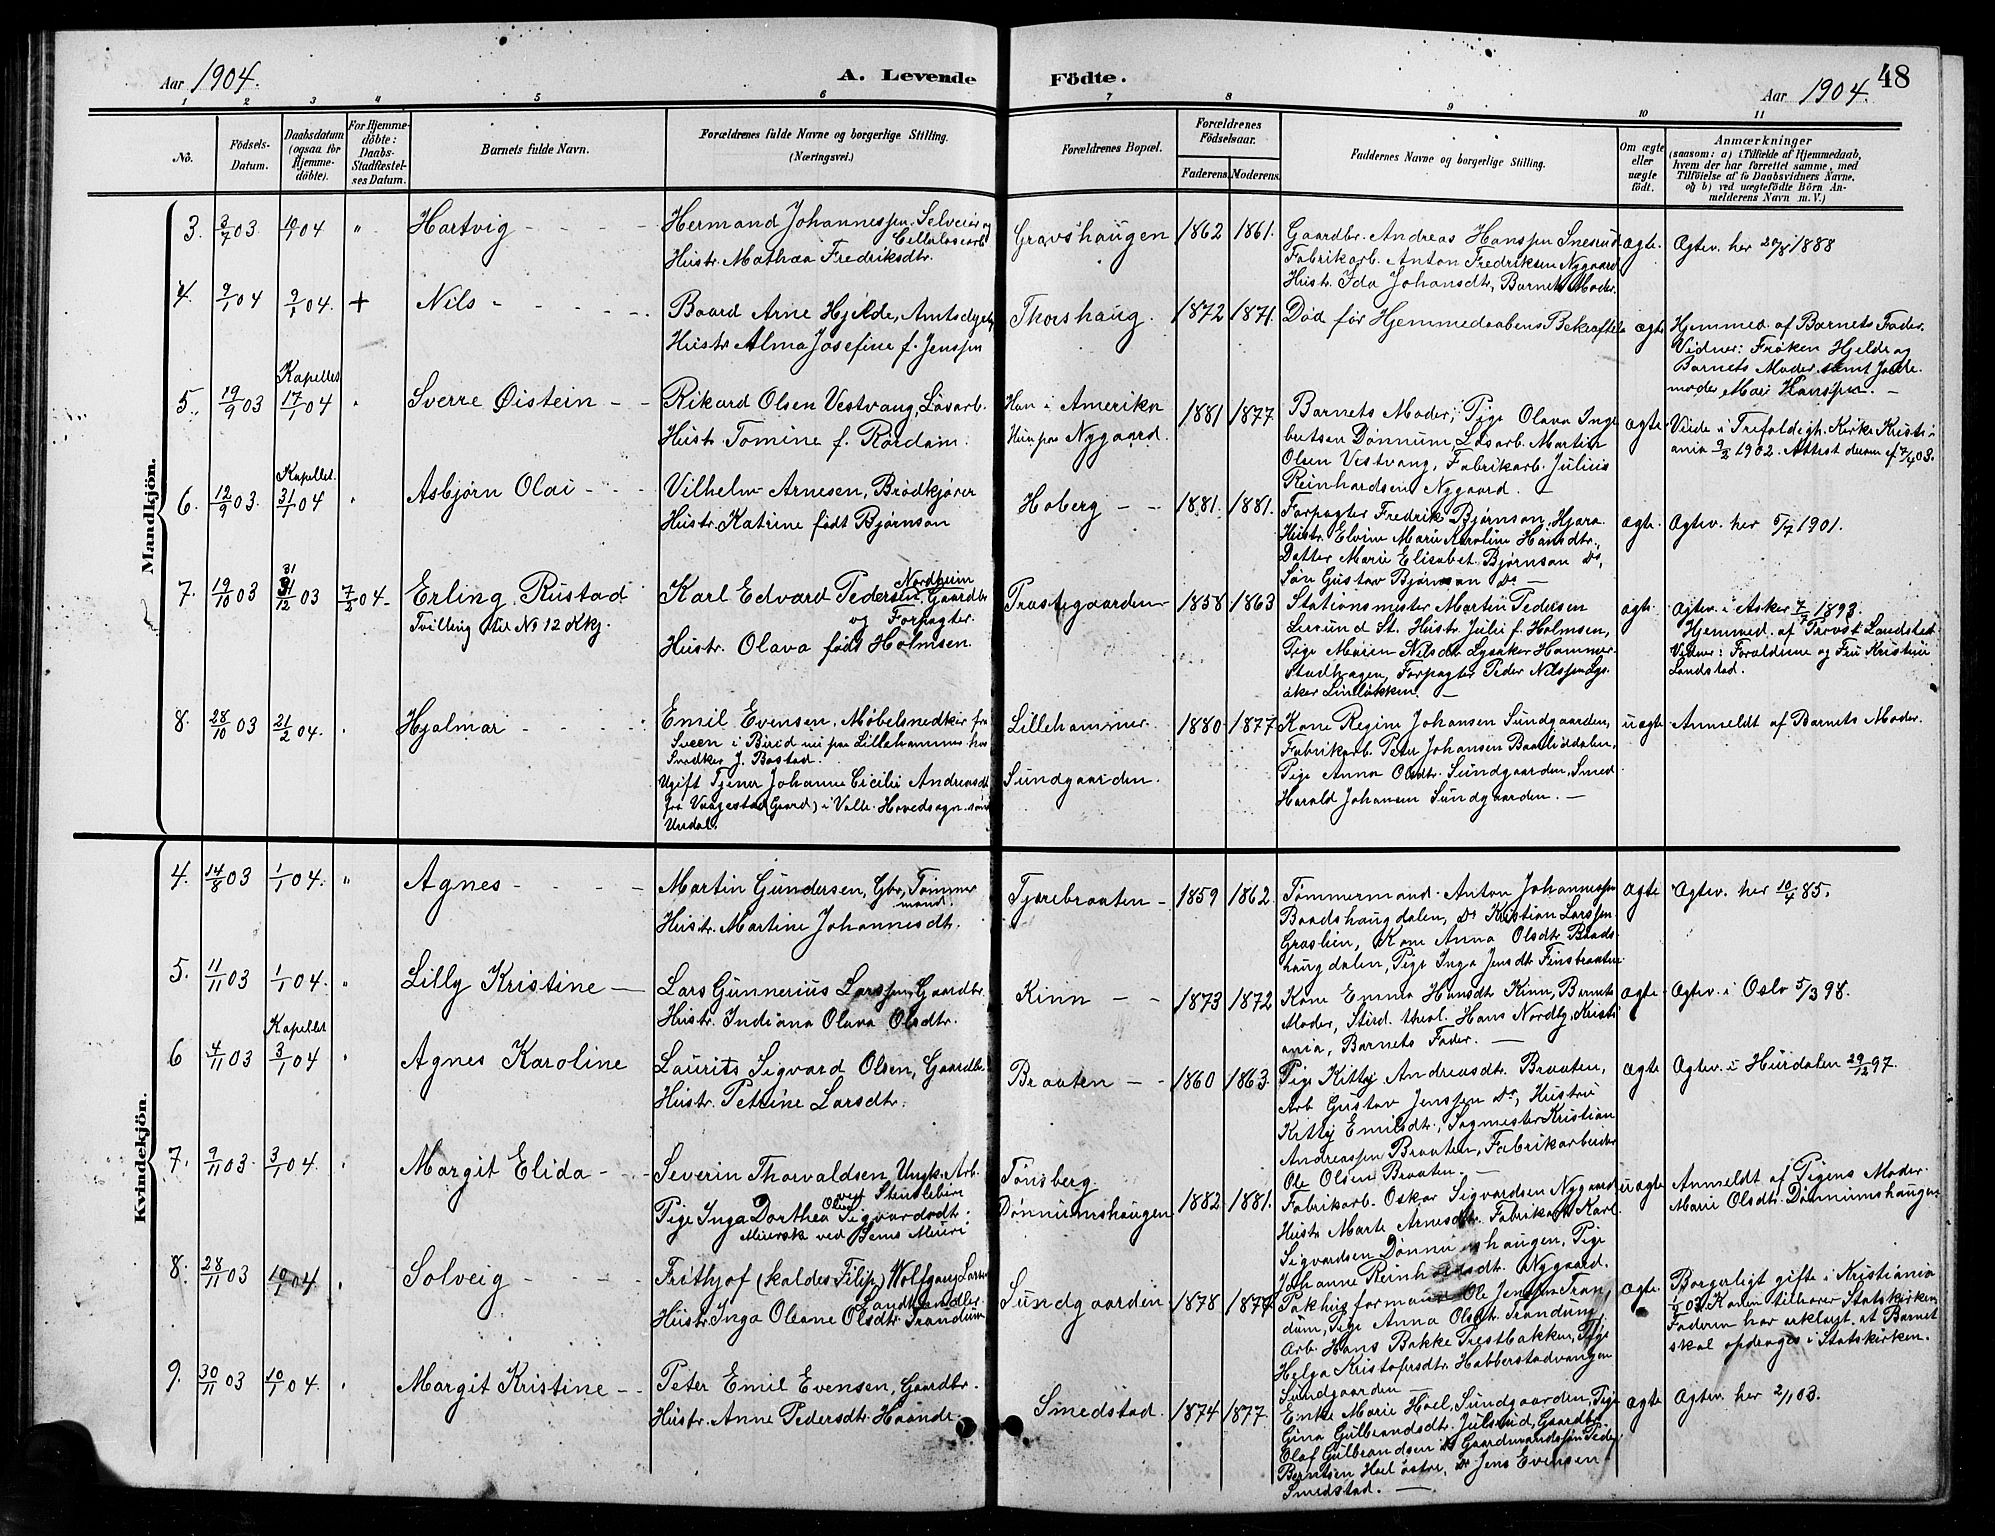 Aar 1904.
A. Levende Födte.
Aar 1904.
48
1 2 3 4 5 6 7 8 9 10 11
No.
Födsels-
Datum.
Daabsdatum
(ogsaa for
Hjemme-
döbte).
For Hjemme-
döbte:
Daabs-
Stadfæstel-
ses Datum.
Barnets fulde Navn.
Forældrenes fulde Navne og borgerlige Stilling.
(Næringsvei.)
Forældrenes Bopæl.
Forældrenes
Födselsaar.
Faderens. Moderens.
Faddernes Navne og borgerlige Stilling.
Om ægte
eller
uægte
födt.
Anmærkninger
(saasom: a) i Tilfælde af Hjemmedaab,
hvem der har forrettet samme, med
Tilföielse af to Daabsvidners Navne,
og b) ved uægtefödte Börn An-
melderens Navn m. V.)
Mandkjön.
3. 3/7 03 10/1 04 " Hartvig
Hermand Johannessen, Selveier og
Cellulosearb.
Hustr. Mathea Fredriksdtr.
Gravshaugen 1862 1861.
Gaardbr. Andreas Hanssen Snesrud
Fabrikarb. Anton Fredriksen Nygaard
Hustr. Ida Johansdtr, Barnets Moder.
ægte. Ægtev. her 1888
4. 9/1 04 9/1 04. + Nils
Baard Arne Hjelde, Amtsdyrlæg
Hustr. Alma Josefine f. Jenssen
Thorshaug. 1872 1871.
Död för Hjemmedaabens Bekræftelse
ægte Hjemmed. af Barnets Fader.
Vidner: Fröken Hjelde og
Barnets Moder samt Jorde-
moder Mari Hanssen.
5. 19/9 03 Kapellet 17/1 04 Sverre Øistein
Rikard Olsen Vestvang, Lösarb.
Hustr. Tomine f. Rördam.
Han i Amerika
Hun paa Nygaard.
1881 1877
Barnets Moder, Pige Olava Inge
bertsen Dönnum, Lösarb. Martin
Olsen Vestvang, Fabrikarb. Julius
Reinhardsen Nygaard.
ægte Viede i Trefoldigh. Kirke Kristi-
ania 9/2 1902. Attest derom
6. 12/9 03. Kapellet. 31/1 04 Asbjørn Olai
Vilhelm Arnesen, Brödkjörer
Hustr. Katrine födt Bjørnson
Hoberg 1881. 1881.
Forpagter Fredrik Bjørnson, Hjara
Hustr. Elvine Marie Karoline Hansdtr.,
Datter Marie Elisabet Bjørnson Do,
Søn Gustav Bjørnson Do
ægte. Ægtev. her 5/7 1901.
7. 19/10 03 31/12 03 7/2 04. Erling Rustad
Tvilling til No 12 Kkj.
Karl Edvard Pedersen Nordheim, Gaardbr
og Forpagter.
Hustr. Olava födt Holmsen.
Præstegaarden 1858 1863
Stationsmester Martin Pedersen
St. Hustr. Julie f. Holmsen,
Pige Maren Nilsdtr Lysaker Hammer-
stadhagen, Forpagter Peder Nilssen Lys-
aker Linlökken.
ægte. Ægtev. i Asker 7/7 1893.
Hjemmed. af Provst Landstad
Vidner: Forældrene og Fru Kristine
Landstad.
8. 28/10 03 21/2 04. Hjalmar
Emil Evensen, Møbelsnedker fra
Sveen i Birid nu paa Lillehammer hos
Snedker J. Bastad.
Ugift Tjener Johanne Cicilie Andreasdt
fra Vaagestad (Gaard) i Valle Hovedsogn, søndre
Undal.
Lillehammer.
Sundgaarden.
1880 1877
Kone Regine Johansen Sundgaarden,
Fabrikarb. Peter Johansen Baatliddalen,
Pige Anna Olsdtr. Sundgaarden, Smed
Harald Johansen Sundgaarden.
uægte Anmeldt af Barnets Moder.
Kvindekjön.
4. 14/8 03 1/1 04. " Agnes
Martin Gundersen, Gbr, Tømmer
mand.
Hustr. Martine Johannesdtr.
Tjærebraaten 1859 1862.
Tømmermand Anton Johannessen
Baadshaugdalen, Do Kristian Larssen
Graslien, Kone Anna Olsdtr Baads-
haugdalen, Pige Inga Jensdtr Finsbraaten
ægte Ægtev. her 10/4 85.
5. 11/11 03 1/1 04. " Lilly Kristine
Lars Gunnerius Larssen, Gaardbr.
Hustr. Indiana Olava Olsdtr.
Kinn 1873 1872
Kone Emma Hansdtr Kinn, Barnets
Moder, Stud. theol. Hans Nordby, Kristi
ania, Barnets Fader.
ægte Ægtev. i Oslo 5/3 98.
6 4/11 03 Kapellet 3/1 04 Agnes Karoline
Laurits Sigvard Olsen, Gaardbr
Hustr. Petrine Larsdtr.
Braaten 1860 1863.
Pige Kitty Andreasdt. Braaten,
Arb. Gustav Jenssen Do, Hustru
Kitty Emilsdtr, Sagmester Kristian
Andreassen Braaten, Fabrikarbeider
Ole Olsen Braaten.
ægte Ægtev. i Hurdalen 29/12 97.
7. 9/11 03. 3/1 04. Margit Elida
Severin Thorvaldsen, Ungk. Arb.
Pige Inga Dorthea Olava Sigvardsdt.
Meiersk ved
Tönsberg.
Dönnumshaugen
1882 1881.
Fabrikarb. Oskar Sigvardsen Nygaard
Hustr. Marte Arnesdtr. Fabrikarb. Karl
Sigvardsen Dönnumshaugen, Pige
Johanne Reinhardsdtr. Nygaard.
uægte Anmeldt af Pigens Moder
Marie Olsdtr. Dönnumshaugen
8. 28/11 03 10/1 04 Solveig
Frithjof (kaldes Filip) Wolfgang Larsen
Landhandler
Hustr. Inga Oleane Olsdtr. Trandum
Sundgaarden 1878 1877
Pakhusformand Ole Jenssen Tran
dum, Pige Anna Olsdt. Trandum,
Arb. Hans Bakke Præstbakken, Pige
Helga Kristofersdtr. Habberstadvangen
Sundgaarden
ægte. Borgerligt gifte i Kristiania
03. Konen tilhører Statskirken
Faderen har erklæret at Barnet
skal opdrages i Statskirken.
9. 30/11 03 10/1 04. Margit Kristine
Peter Emil Evensen, Gaardbr.
Hustr. Anne Pedersdtr. Haande
Smedstad. 1874 1877.
Enke Marie Hoel, Sundgaarden, Pige
Gina Gulbrandsdt. Julsrud, Gaardbr
Olaf Gulbrandsen Do Gaardmandssøn Peder
Berntsen Hoel østre, Do Jens Evensen
Smedstad.
ægte Ægtev. her 2/1 03.